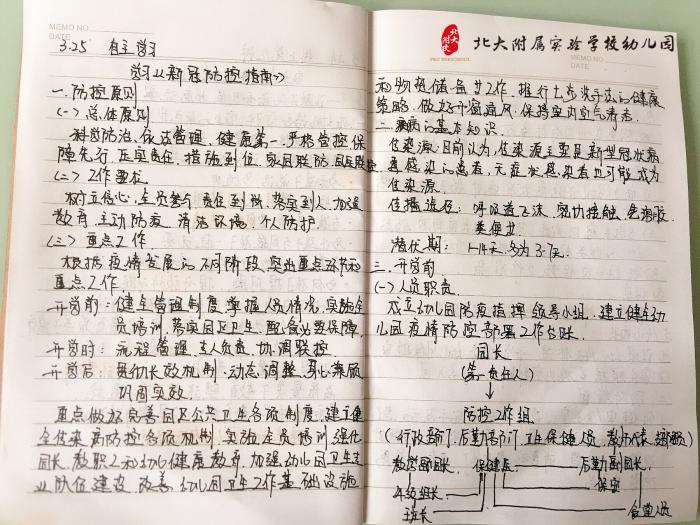 MEMO NO.
DATE
3.25 自主学习
学习《新冠防控指南》
一.防控原则
(一)总体原则
科学防治、依法管理、健康第一、严格管控、保
障先行、压实责任、措施到位、家园联防、
(二)工作要求
树立信心、全员参与、责任到岗、落实到人、加强
教育、主动防疫、清洁环境、个人防护.
(三)重点工作
根据疫情发展的不同阶段,突出重点环节和
重点工作.
开学前:健全管理制度、掌握人员情况、实施全
员培训、落实园区卫生、配备必要保障.
开学时:流程管理、专人负责、协调联控
开学后:贯彻长效机制、动态调整、
巩固实效.
重点做好完善园区公共卫生各项制度、建立健
全传染病防控各项机制、实施全员培训、强化
园长、教职工和幼儿健康教育、加强幼儿园卫生专
业队伍建设、改善幼儿园卫生工作基础设施
北大附实
北大附属实验学校幼儿园
MEMO NO.
DATE
和物资储备等工作、推行七步洗手法的健康
策略,做好开窗通风、保持室内空气清洁.
二.疾病的基本知识
传染源:目前认为,传染源主要是新型冠状病
毒感染的患者,无症状感染者也可能成为
传染源.
传播途径:呼吸道飞沫、密切接触、
潜伏期:1-14天,多为3-7天.
三.开学前
(一)人员职责.
成立幼儿园防疫指挥领导小组,建立健全幼
儿园疫情防控部署工作台账.
园长
(第一责任人)
防控工作组
(行政部门、后勤部门、卫生保健人员、教师代表、)
教学副园长 保健医 后勤副园长
年级组长 保安
班长 食堂人员